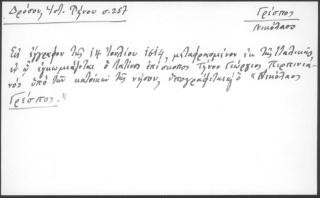 Δρόσου, Ἱστ. Τήνου σ. 257
Γρίσπος
Νικόλαος
Εἰς ἔγγραφον τῆς 14 Ἰουλίου 1614, μεταφρασμένον ἐκ τῆς Ἰταλικῆς
ἐν ᾧ ἐγκωμιάζεται ὁ Λατῖνος ἐπίσκοπος Τήνου Γεώργιος Περπινιά-
νος ὑπὸ τῶν κατοίκων τῆς νήσου, ὑπογράφεται καὶ ὁ "Νικόλαος
Γρίσπος."